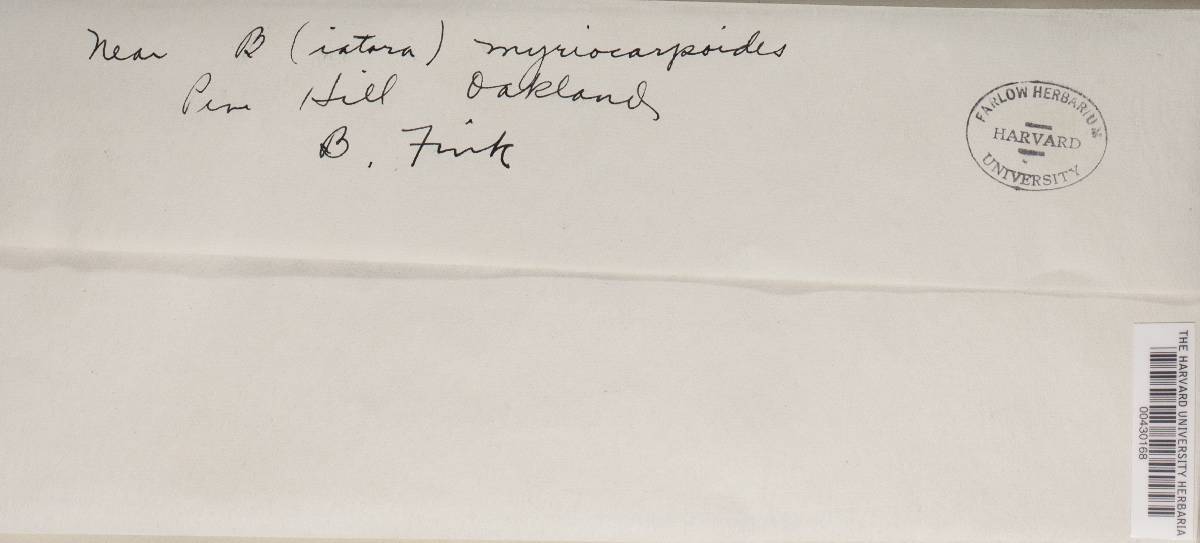 Near B (iatora) myriocarpoides
Pine Hill Oakland
B. Fink
FARLOW HERBARIUM
HARVARD
UNIVERSITY
THE HARVARD UNIVERSITY HERBARIA
00430168